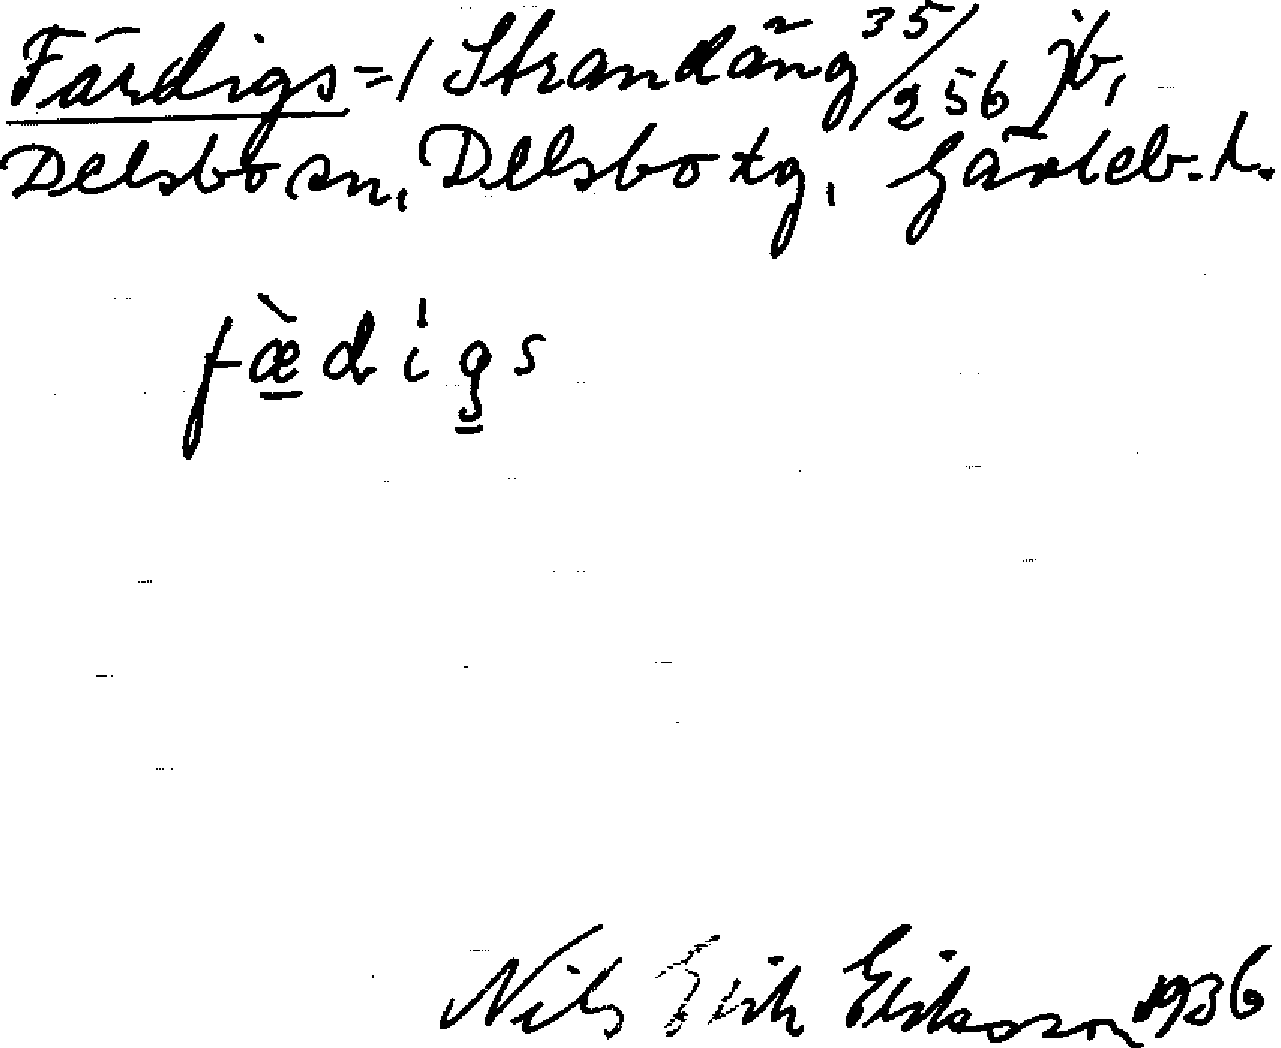 Färdigs = 1 Strandäng 35/256 jb,
Delsbo sn, Delsbo tg, Gävleb. l.
fæ̀digs
Nils Erik Eriksson 1936